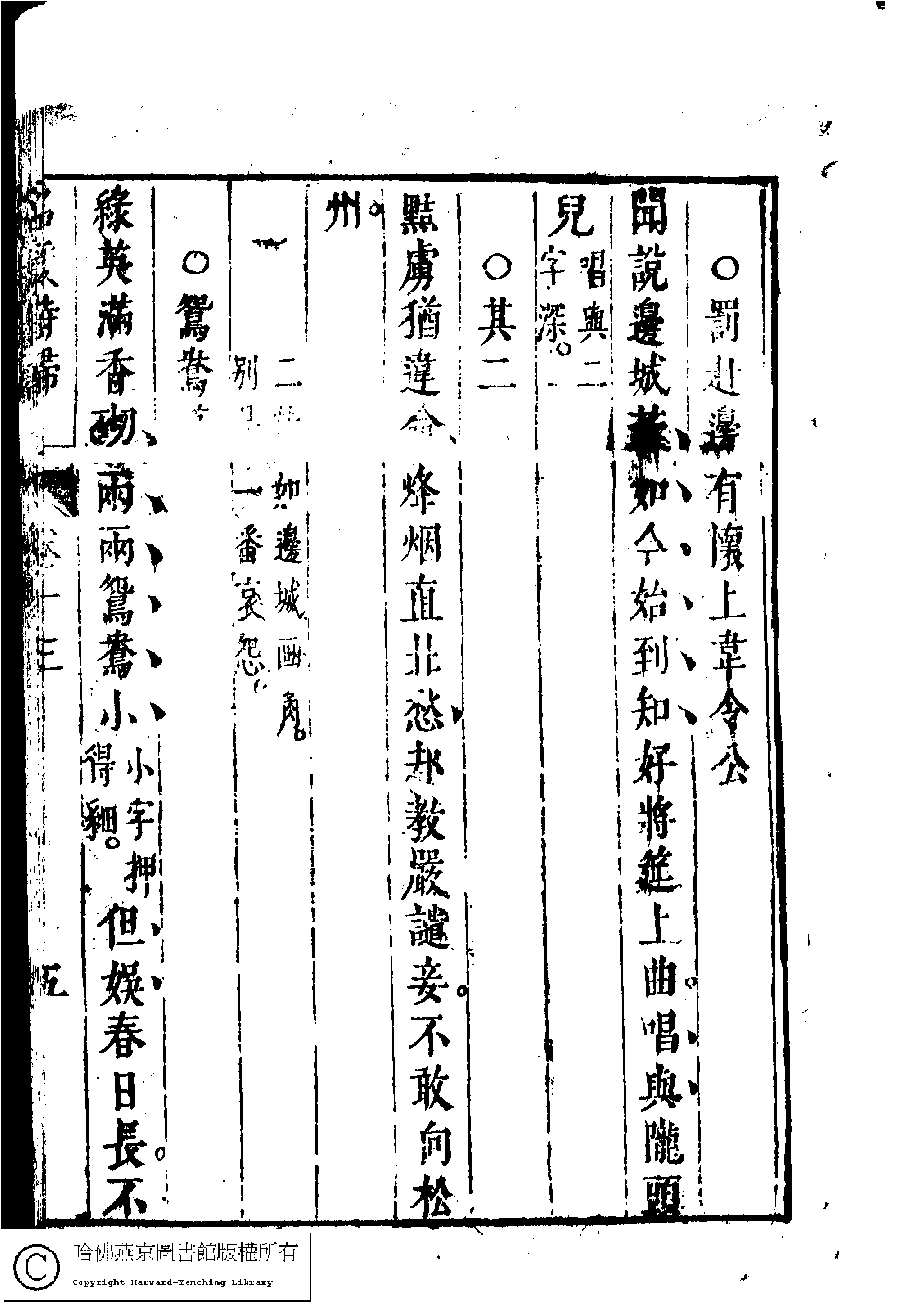 ○罰赴邊有懷上韋令公
聞說邊城苦如今始到知好將筵上曲。唱與隴頭
兒唱與二字深。
○其二
黠虜猶違命烽烟直北愁却教嚴譴妾。不敢向松
州。
二 如邊城画角。
別 一番哀怨
○鴛鴦
綠英滿香砌兩兩鴛鴦小小字押得細。但娛春日長。不
名媛詩歸 卷十三 五
哈佛燕京圖書館版權所有
Copyright Harvard-Yenching Library